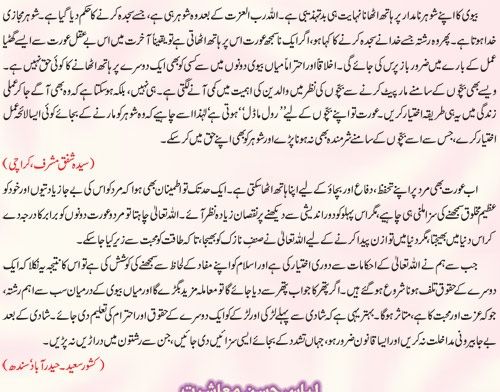 بیوی کا اپنے شوہر نامدار پر ہاتھ اٹھانا نہایت ہی بدتہذیبی ہے۔ اللہ رب العزت کے بعد وہ شوہر ہی ہے، جسے سجدہ کرنے کا حکم دیا گیا ہے۔ شوہر مجازی
خدا ہوتا ہے۔ پھر وہ رشتہ جسے خدا نے سجدہ کرنے کا کہا ہو، اگر ایک ناسمجھ عورت اس پر ہاتھ اٹھاتی ہے تو یقیناً آخرت میں اس بے عقل عورت سے ایسے گھٹیا
عمل کے بارے میں ضرور باز پرس کی جائے گی۔ اخلاقاً اور احتراماً میاں بیوی دونوں میں سے کسی کو بھی ایک دوسرے پر ہاتھ اٹھانے کا کوئی حق نہیں ہے۔
ویسے بھی بچوں کے سامنے مار پیٹ کرنے سے بچوں کی نظر میں والدین کی اہمیت میں کمی آنے لگتی ہے۔ یہی نہیں، بلکہ ہوسکتا ہے کہ وہ بھی آگے جا کر عملی
زندگی میں یہ ہی طریقہ اختیار کریں۔ عورت تو اپنے بچوں کے لیے ”رول ماڈل“ ہوتی ہے لہٰذا اسے چاہیے کہ وہ شوہر کو مارنے کے بجائے کوئی ایسا لائحہ عمل
اختیار کرے، جس سے اسے بچوں کے سامنے شرمندہ بھی نہ ہونا پڑے اور شوہر کو بھی اپنے حق میں کرسکے۔
(سیدہ شفق مشرف، کراچی)
اب عورت بھی مرد پر اپنے تحفظ، دفاع اور بچاؤ کے لیے اپنا ہاتھ اٹھا سکتی ہے۔ ایک حد تک تو اطمینان بھی ہوا کہ مرد کو اس کی بے جا زیادتیوں اور خود کو
عظیم مخلوق سمجھنے کی سزا ملنی ہی چاہیے، مگر اس پہلو کو دور اندیشی سے دیکھنے پر نقصان زیادہ نظر آئے۔ اللہ تعالیٰ چاہتا تو مرد و عورت دونوں کو برابر کا درجہ دے
کر اس دنیا میں بھیجتا، مگر دنیا میں توازن پیدا کرنے کے لیے اللہ تعالیٰ نے صنفِ نازک کو بھیجا، تاکہ طاقت کو محبت سے زیر کیا جاسکے۔
جب سے ہم نے اللہ تعالیٰ کے احکامات سے دوری اختیار کی ہے اور اسلام کو اپنے مفاد کے لحاظ سے سمجھنے کی کوشش کی ہے تو اس کا نتیجہ یہ نکلا کہ ایک
دوسرے کے حقوق تلف ہونا شروع ہوگئے ہیں۔ اگر پتھر کا جواب پتھر سے دیا جائے گا تو معاملہ مزید بگڑے گا اور میاں بیوی کے درمیان سب سے اہم رشتہ،
جو کہ عزت اور محبت کا ہے، متاثر ہوگا۔ بہتر یہی ہے کہ شادی سے پہلے لڑکی اور لڑکے کو ایک دوسرے کے حقوق اور احترام کی تعلیم دی جائے۔ شادی کے بعد
بے جا بیرونی مداخلت نہ کریں اور ایسا قانون ضرور ہو، جہاں تشدد کے بجائے، ایسی سزائیں دی جائیں، جن سے رشتوں میں دراڑیں نہ پڑیں۔
(کشور سعید۔ حیدرآباد، سندھ)